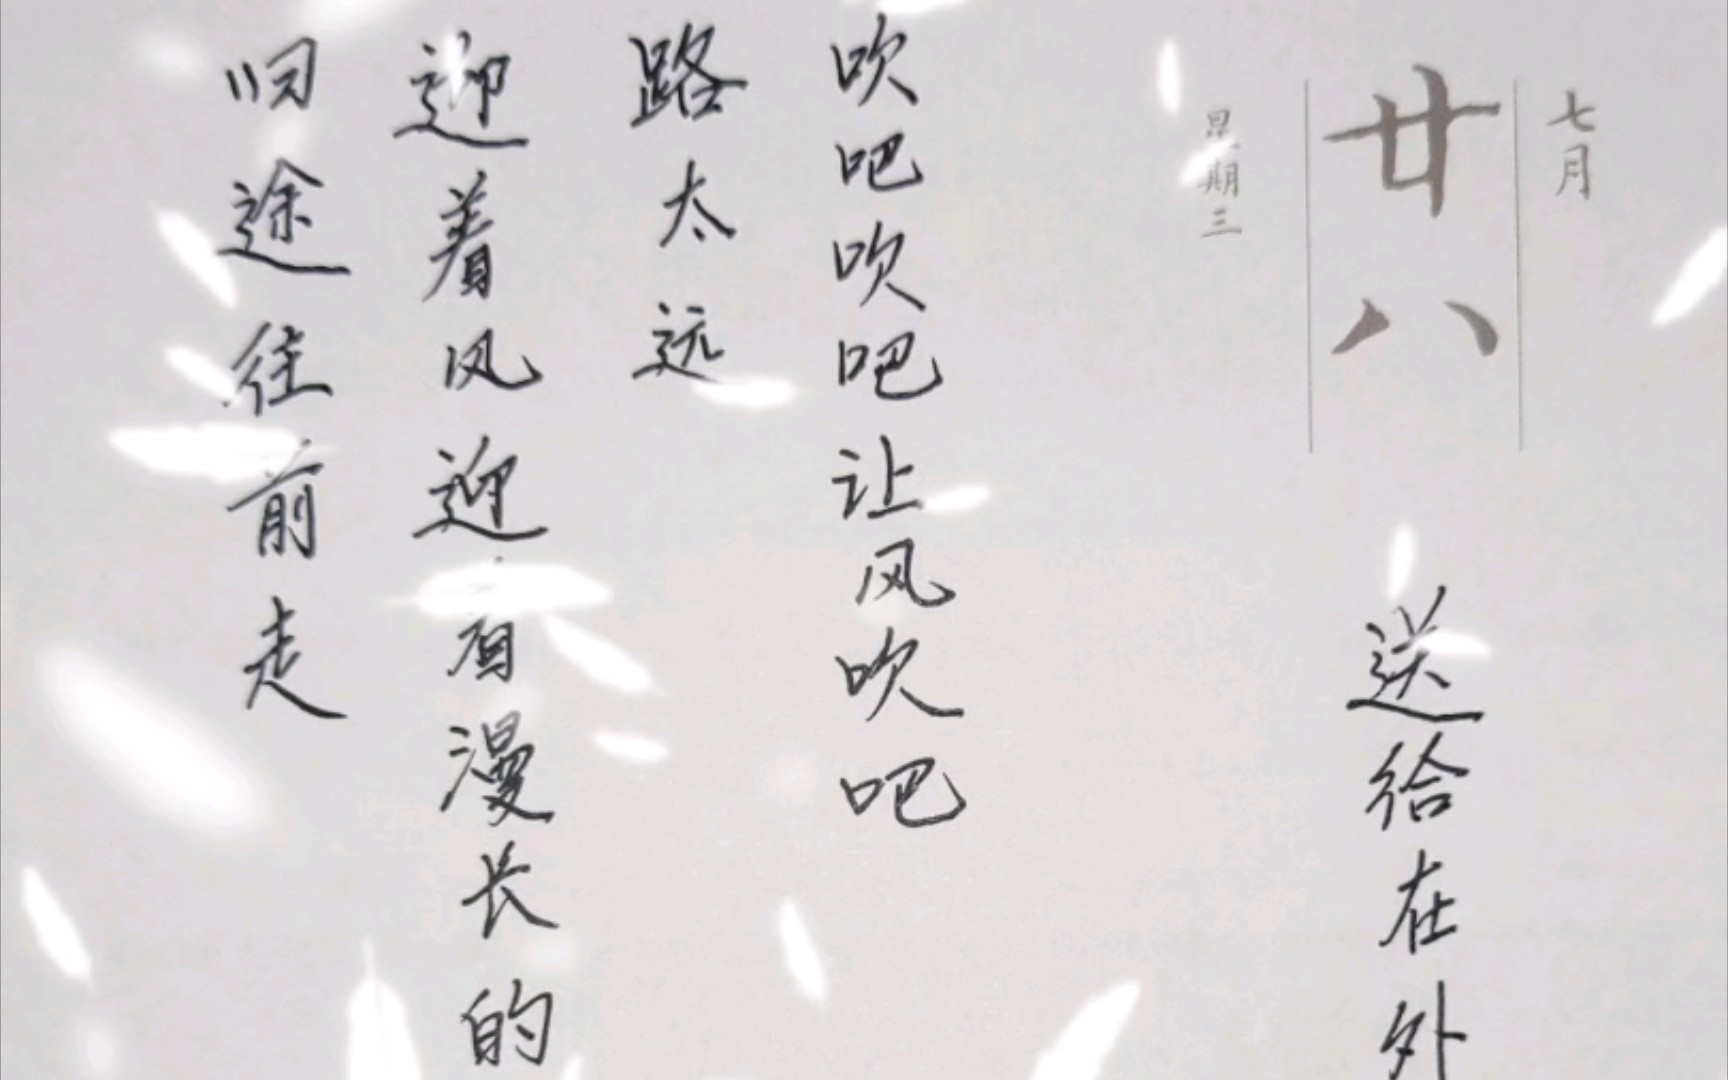 七月
廿八
星期三
送给在外
吹吧吹吧让风吹吧
路太远
迎着风迎着漫长的
归途往前走